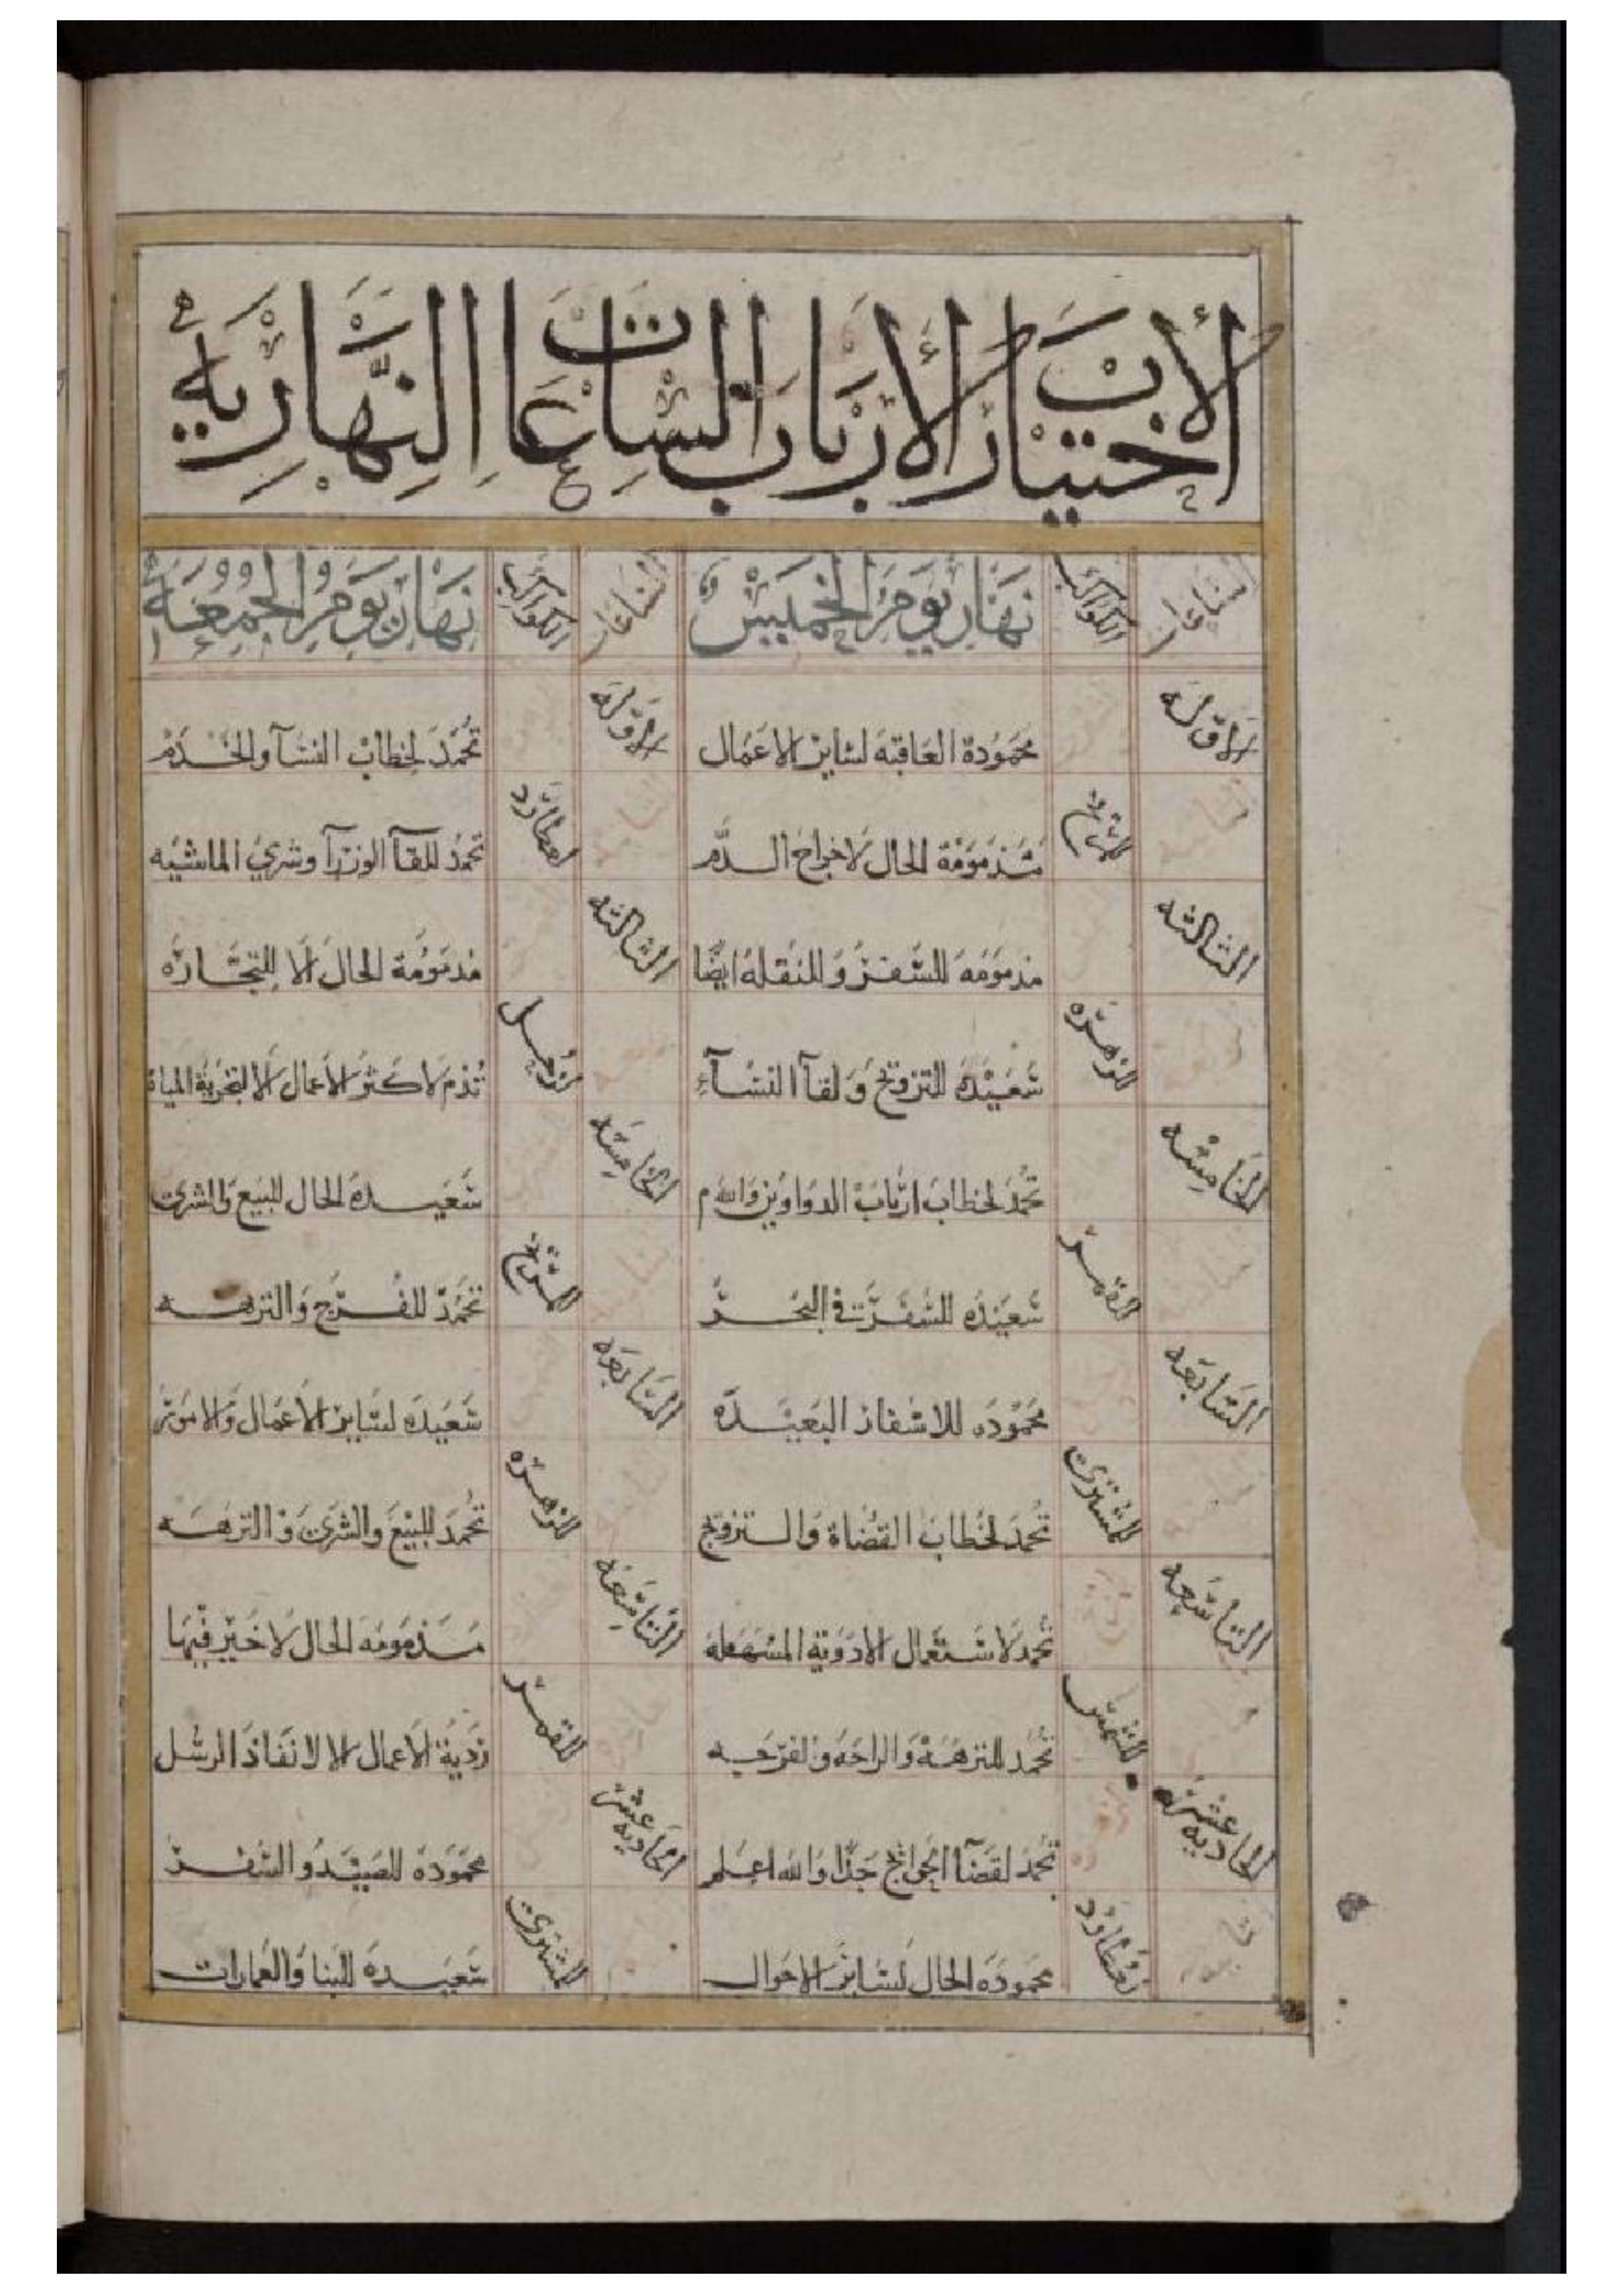 الاختيارات لأرباب الساعات النهارية
الساعات الكواكب نهار يوم الخميس الساعات الكواكب نهار يوم الجمعة
الاوله محمودة العاقبه لساير الاعمال الاوله تحمد لخطاب النسآ والخدم
المريخ مذمومة الحال لاخراج الدم عطارد تحمد للقآ الوزرآ وشري الماشيه
الثالثه مذمومه للسفر والنقله ايضا الثالثه مذمومة الحال الا للتجاره
الزهره سعيده للتزويج ولقآ النسآء زحل تذم لاكثر الاعمال الا لتجرية المياة
الخامسه تحمد لخطاب ارباب الدواوين والله م الخامسه سعيدة الحال للبيع والشرى
القمر سعيده للسفر في البحر المريخ تحمد للفرج والنزهه
السابعه محموده للاسفار البعيدة السابعه سعيده لساير الاعمال والامور
المشترى تحمد لخطاب القضاة والتزويج الزهره تحمد للبيع والشرى والنزهه
التاسعه تحمد لاستعمال الادوية المسهله التاسعه مذمومه الحال لا خير فيها
الشمس تحمد للنزهة والراحه والفرجه القمر ردية الاعمال الا لانفاذ الرسل
الحاديه عشره تحمد لقضآ الحوايج جدا والله اعلم الحاديه عشر محمودة للصيد والسفر
عطارد محموده الحال لساير الاحوال المشترى سعيدة للبنا والعمارات